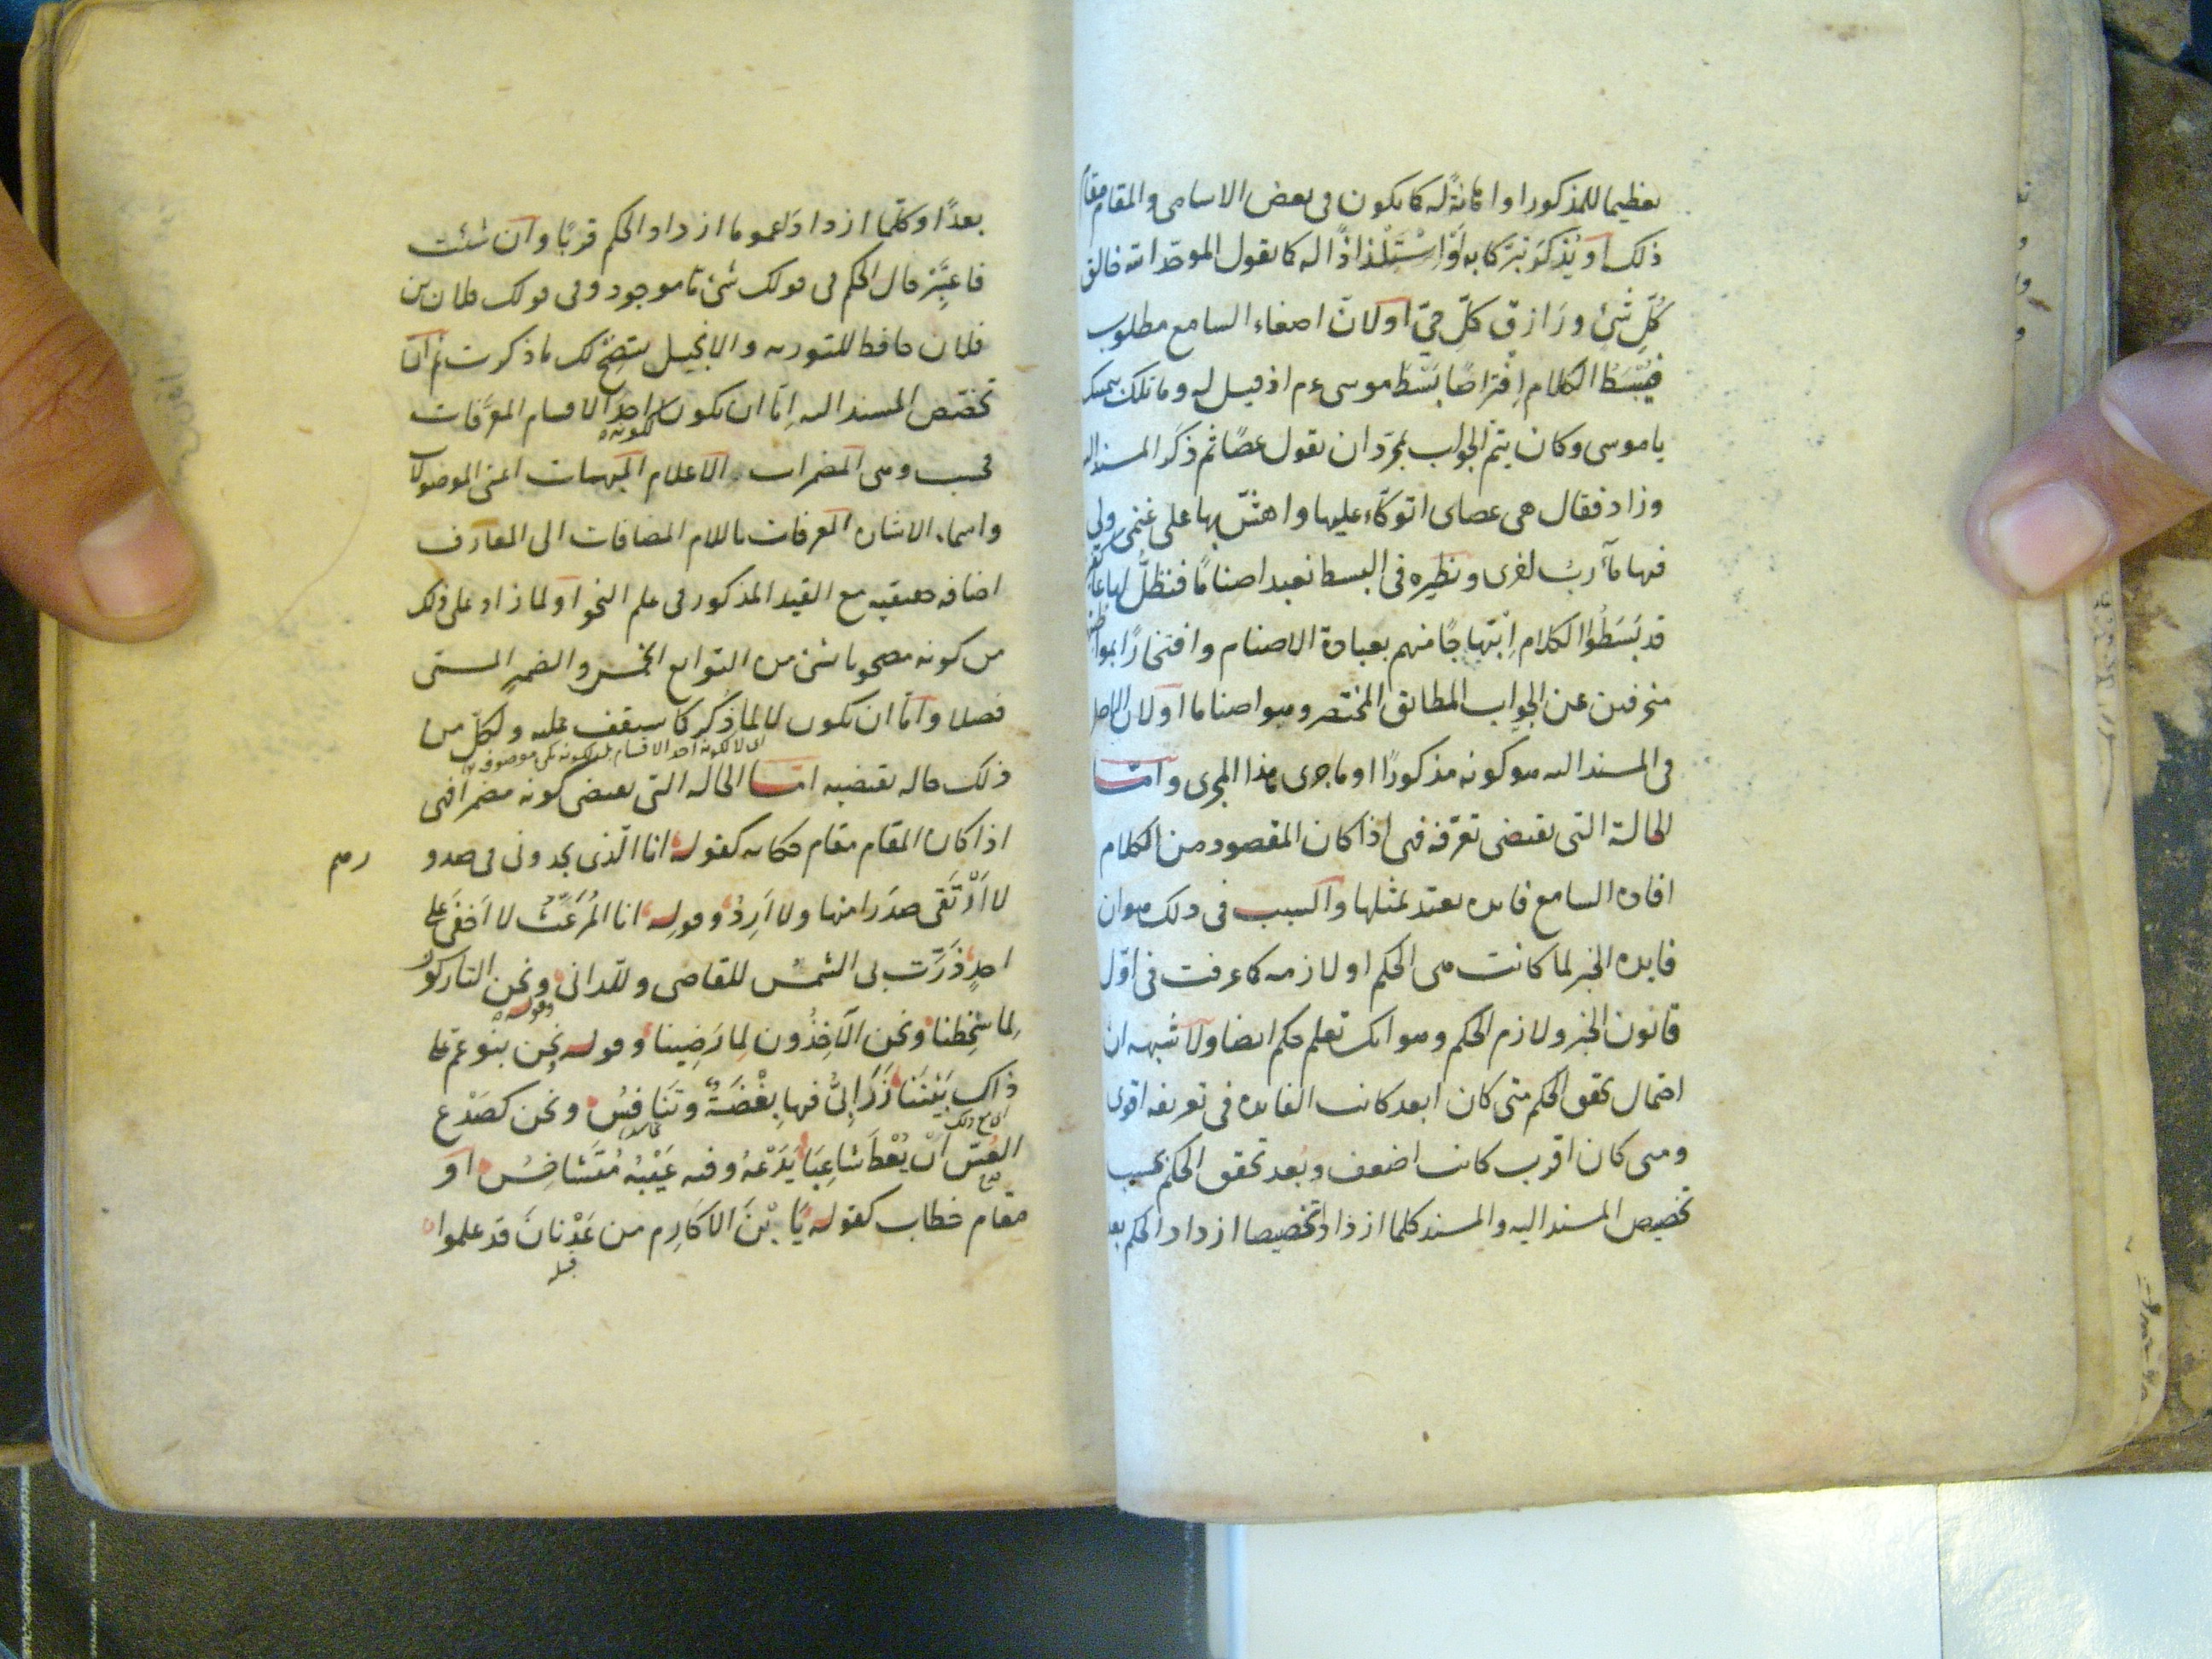 تعظيما للمذكور او اهانة له كما يكون فى بعض الاسامى والمقام مقام
ذلك او يذكر تبركا به او استلذاذا له كما يقول الموحد الله خالق
كل شئ ورازق كل حى او لان اصغاء السامع مطلوب
فيبسط الكلام افتراصا بسط موسى ءم اذ قيل له وما تلك بيمينك
يا موسى وكان يتم الجواب بمجرد ان يقول عصا ثم ذكر المسند اليه
وزاد فقال هى عصاى اتوكاء عليها واهش بها على غنمى ولى
فيها مآرب اخرى ونظيره فى البسط نعبد اصناما فنظل لها عاكفين
قد بسطوا الكلام ابتهاجا منهم بعبادة الاصنام وافتخارا بمواظبتها
منحرفين عن الجواب المطابق المختصر وهو اصناما او لان الاصل
فى المسند اليه هو كونه مذكورا او ما جرى هذا المجرى واما
الحالة التى تقتضى تعرفه فهى اذا كان المقصود من الكلام
افادة السامع فايدة يعتد بمثلها والسبب فى ذلك هو ان
فايدة الخبر لما كانت هى الحكم او لازمه كما عرفت فى اول
قانون الخبر ولازم الحكم وهو انك تعلم حكم ايضا ولا شبهة ان
احتمال تحقق الحكم متى كان ابعد كانت الفايدة فى تعريفه اقوى
ومتى كان اقرب كانت اضعف وبعد تحقق الحكم بحسب
تخصيص المسند اليه والمسند كلما ازداد تخصيصا ازداد الحكم بعدا
بعدا وكلما ازداد عموما ازداد الحكم قربا وان شئت
فاعتبر حال الحكم فى قولك شئ ما موجود وفى قولك فلان بن
فلان حافظ للتورية والانجيل يتضح لك ما ذكرت ثم ان
تخصص المسند اليه اما ان يكون لكونه احد الاقسام المعرفات
فحسب وهى المضمرات الاعلام المبهمات اعنى الموصولات
واسماء الاشارة المعرفات باللام المضافات الى المعارف
اضافة حقيقية مع القيد المذكور فى علم النحو او لما زاد على ذلك
من كونه مصحوبا بشئ من التوابع الخمس والضمير المسمى
فصلا واما ان يكون لا لما ذكر كما سيقف عليه ولكل من
اى لا لكونه احد الاقسام بل لكونه نكرة موصوفة
ذلك حالة تقتضيه اما الحالة التى تقتضى كونه مضمرا فهى
اذا كان المقام مقام حكاية كقوله انا الذى يجدونى فى صدو
رهم
لا ارتقى صدرا منها ولا ارد وقوله انا المرعث لا اخفى على
احد ذرت بى الشمس للقاصى وللدانى ونحن التاركون
وقوله
لما سخطنا ونحن الآخذون لما رضينا وقوله نحن بنو عم على
ذاك بيننا زرابى فيها بغضة وتنافس ونحن كصدع
اى مع ذلك
العس ان يعط شاعبا يدعه وفيه عيبه متشاخس او
مقام خطاب كقوله يا بن الاكارم من عدنان قد علموا